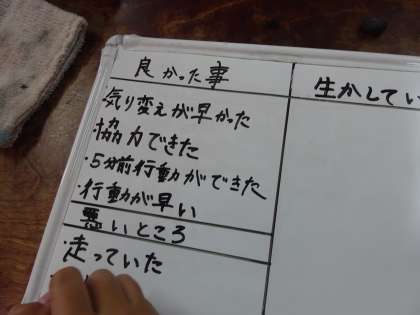 良かった事
・気り変えが早かった
・協力できた
・5分前行動ができた
・行動が早い
悪いところ
・走っていた
生かしてい